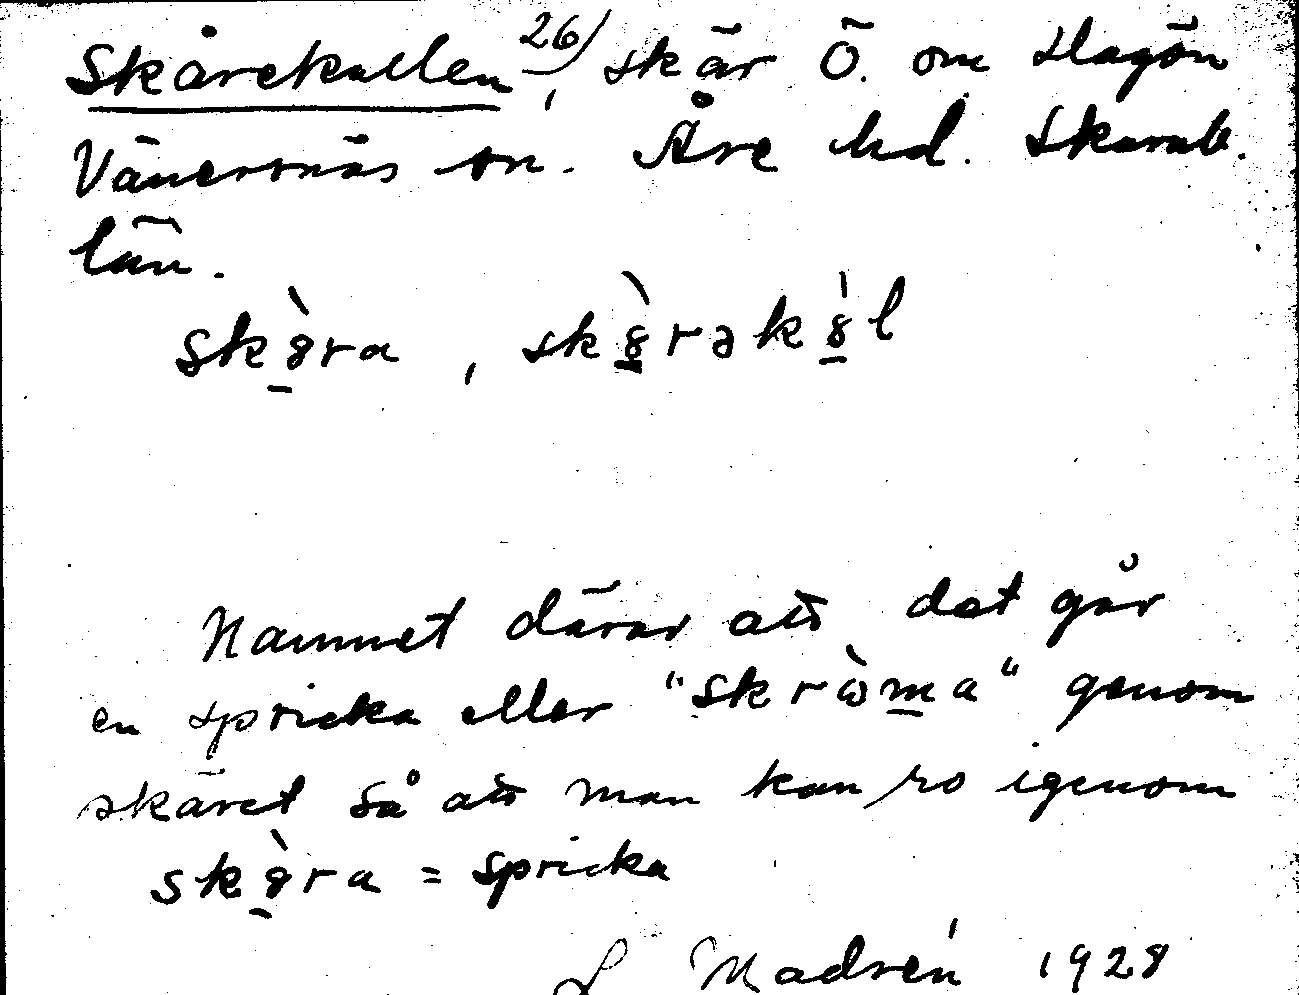 Skårekullen 26/, skär Ö. om Slagön
Vänersnäs sn. Åse hd. Skarab.
län.
skȣ̀ra, skȣ̀rəkȣ̍l
Namnet därav att det går
en spricka eller "skròma" genom
skäret så att man kan ro igenom
skȣ̀ra = spricka
L Madsén 1928